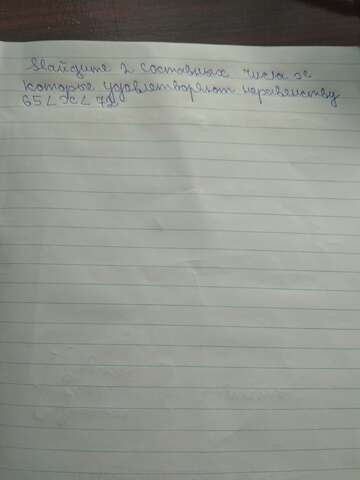 Найдите 2 составных числа x
которые удовлетворяют неравенству
65 < x < 72